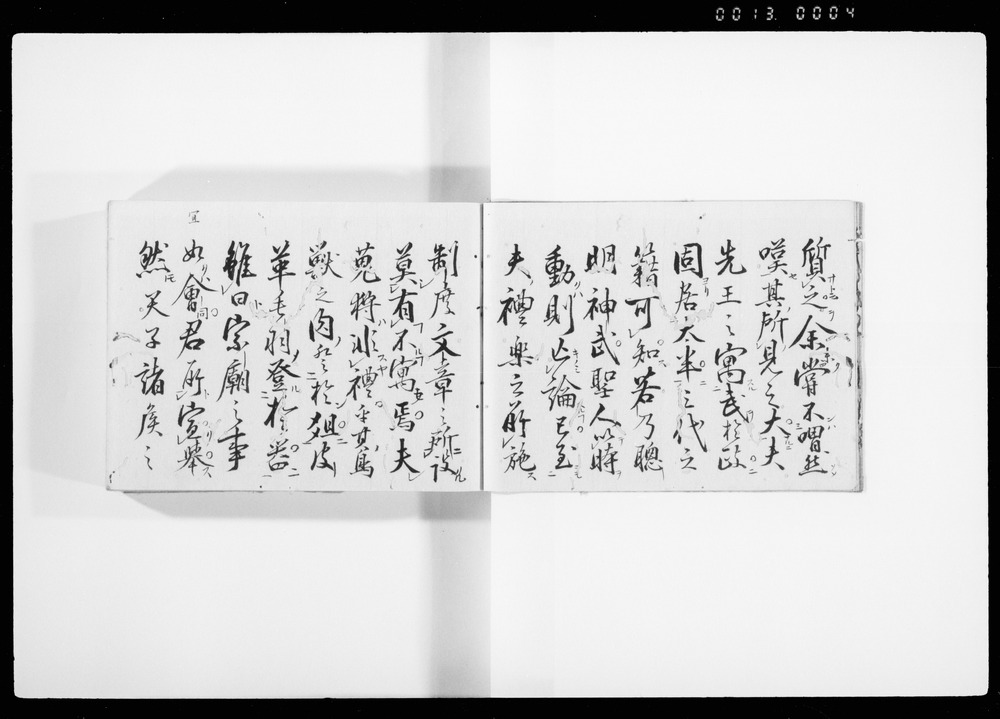 0013.0004
質之余嘗不喟然
嘆其所見之大夫
先王之寓武於政
固居太半三代之
籍可知若乃聰
明神武聖人以時
動則亡論已至
夫禮樂之所施
制度文章之所設
莫有不寓焉夫
蒐狩非禮乎其鳥
獸之肉登於俎皮
革毛羽登於器
雖曰宗廟之事
如會同君所宣舉
宜
然天子諸侯之